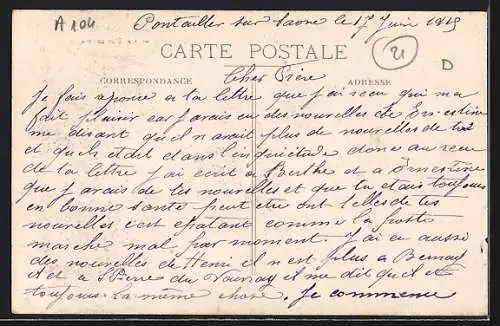 A 104
Pontailler sur Saone le 17 Juin 1915
CARTE POSTALE
21
D
CORRESPONDANCE
ADRESSE
Cher Frère
Je fais reponse a ta lettre que j'ai recu qui ma
fait plaisir car j'avais eu des nouvelles de Ernestine
me disant qu'il n'avait plus de nouvelles de toi
et quels etait dans l'inquietude donc au recu
de ta lettre j'ai ecrit a Berthe et a Ernestine
que j'avais de tes nouvelles et que tu etais toujours
en bonne sante peut etre ont elles de tes
nouvelles c'est epatant comme la poste
marche mal par moment. J'ai eu aussi
des nouvelles de Henri il n'est plus a Bernay
il et a St Pierre du il me dit qu'il et
toujours la même chose. Je commence